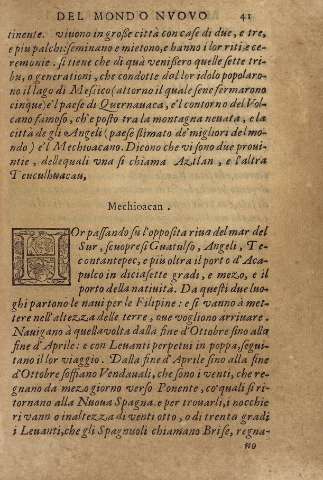 DEL MONDO NVOVO 41
tinente. viuono in große città con case di due, e tre,
e piu palchi: seminano e mietono, e hanno i lor riti, e ce-
remonie. si tiene che di quà venißero quelle sette tri-
bu, o generationi, che condotte dal lor idolo popolaro-
no il lago di Messico (attorno il quale se ne fermarono
cinque) e'l paese di Quernauaca, e'l contorno del Vol-
cano famoso, ch'è posto tra la montagna neuata, e la
città de gli Angeli (paese stimato de' migliori del mon-
do) e'l Mechioacano. Dicono che vi sono due prouin-
tie, dellequali vna si chiama Aztlan, e l'altra
Teuculhuacan,
Mechioacan.
HOr passando su l'opposita riua del mar del
Sur, scuopresi Guatulso, Angeli, Te-
contantepec, e piu oltra il porto d'Aca-
pulco in diciasette gradi, e mezo, e il
porto della natiuità. Da questi due luo-
ghi partono le naui per le Filipine: e si vanno à met-
tere nell'altezza delle terre, oue vogliono arriuare.
Nauigano à quella volta dalla fine d'Ottobre sino alla
fine d'Aprile: e con Leuanti perpetui in poppa, segui-
tano il lor viaggio. Dalla fine d'Aprile sino alla fine
d'Ottobre soffiano Vendauali, che sono i venti, che re-
gnano da mezo giorno verso Ponente, co' quali si ri-
tornano alla Nuoua Spagna. e per trouarli, i nocchie
ri vanno in altezza di venti otto, o di trenta gradi
i Leuanti, che gli Spagnuoli chiamano Brise, regna-
no